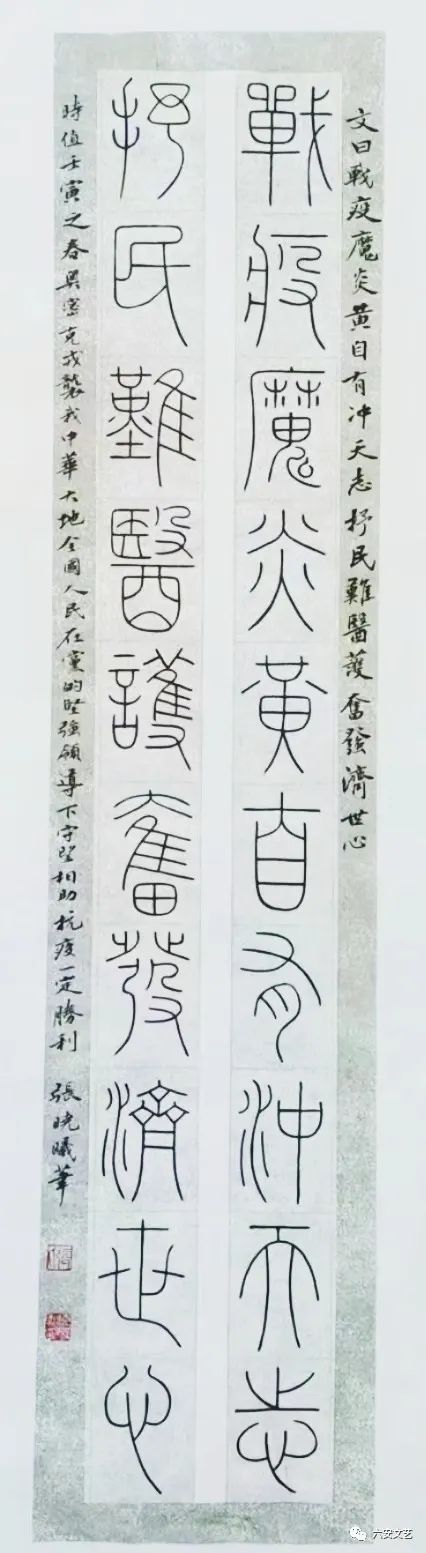 文曰戰疫魔炎黃自有冲天志抒民難醫護奮發濟世心
戰疫魔炎黃自有沖天志
抒民難醫護奮發濟世心
時值壬寅之春奥密克戎襲我中華大地全國人民在黨的堅強領導下守望相助抗疫一定勝利 張曉曦筆
六安文艺